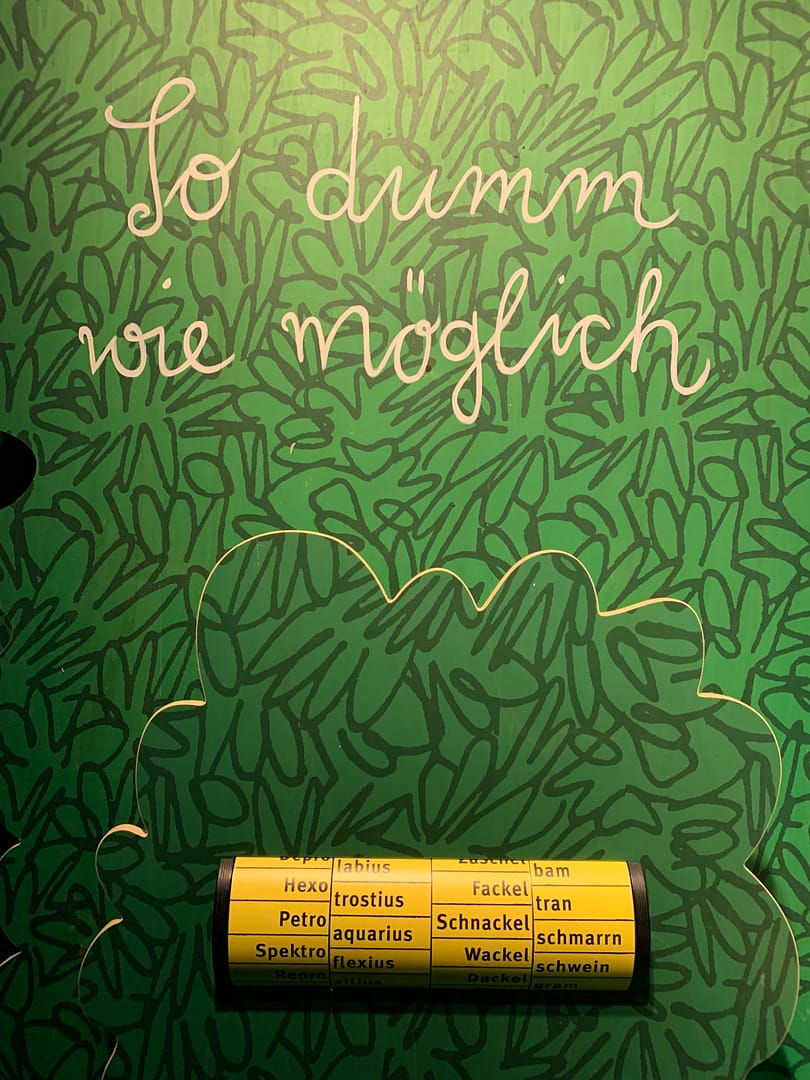 So dumm
wie möglich
Depro labius Zuschel bam
Hexo trostius Fackel tran
Petro aquarius Schnackel schmarrn
Spektro flexius Wackel schwein
Repro Dackel gram